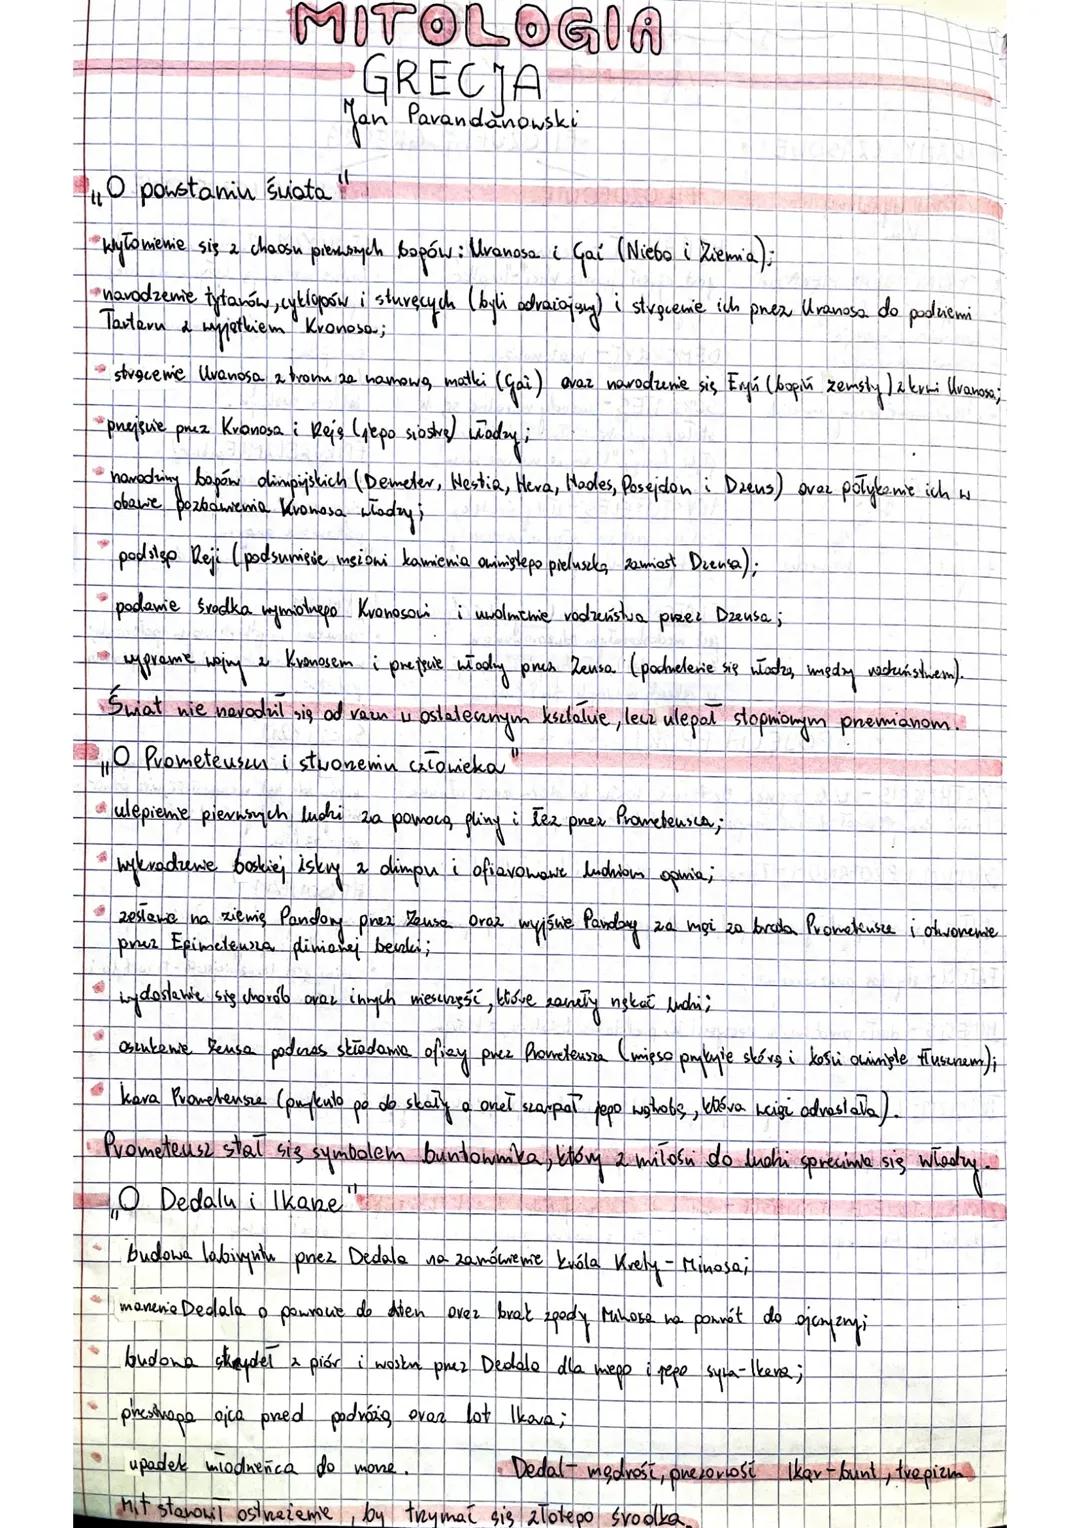 MITOLOGIA
GRECJA
Jan Parandanowski
„O powstaniu świata"
wyłonienie się z chaosu pierwszych bogów: Uranosa i Gai (Niebo i Ziemia);
narodzenie tytanów, cyklopów i sturęcych (byli odrażający) i strącenie ich przez Uranosa do podziemi
Tartaru z wyjątkiem Kronosa;
strącenie Uranosa z tronu za namową matki (Gai) oraz narodzenie się Eryń (bogiń zemsty) z krwi Uranosa;
przejęcie przez Kronosa i Reję (jego siostrę) władzy;
narodziny bogów olimpijskich (Demeter, Hestia, Hera, Hades, Posejdon i Dzeus) oraz połykanie ich w
obawie pozbawienia Kronosa władzy;
podstęp Reji (podsunięcie mężowi kamienia owiniętego pieluszką zamiast Dzeusa);
podanie środka wymiotnego Kronosowi i uwolnienie rodzeństwa przez Dzeusa;
wygranie wojny z Kronosem i przejęcie władzy przez Zeusa (podzielenie się władzą między rodzeństwem).
Świat nie narodził się od razu w ostatecznym kształcie, lecz ulegał stopniowym przemianom.
„O Prometeuszu i stworzeniu człowieka"
ulepienie pierwszych ludzi za pomocą gliny i łez przez Prometeusza;
wykradzenie boskiej iskry z olimpu i ofiarowanie ludziom ognia;
zesłanie na ziemię Pandory przez Zeusa oraz wyjście Pandory za mąż za brata Prometeusza i otworzenie
przez Epimeteusza glinianej beczki;
wydostanie się chorób oraz innych nieszczęść, które zaczęły nękać ludzi;
oszukanie Zeusa podczas składania ofiary przez Prometeusza (mięso przykryte skórą i kości owinięte tłuszczem);
kara Prometeusza (przykuto go do skały a orzeł szarpał jego wątrobę, która wciąż odrastała).
Prometeusz stał się symbolem buntownika, który z miłości do ludzi sprzeciwia się władzy.
„O Dedalu i Ikarze"
budowa labiryntu przez Dedala na zamówienie króla Krety - Minosa;
marzenia Dedala o powrocie do Aten oraz brak zgody Minosa na powrót do ojczyzny;
budowa skrzydeł z piór i wosku przez Dedala dla niego i jego syna - Ikara;
przestroga ojca przed podróżą oraz lot Ikara;
upadek młodzieńca do morza. Dedal - mądrość, przezorność Ikar - bunt, tragizm
Mit stanowił ostrzeżenie, by trzymać się złotego środka.